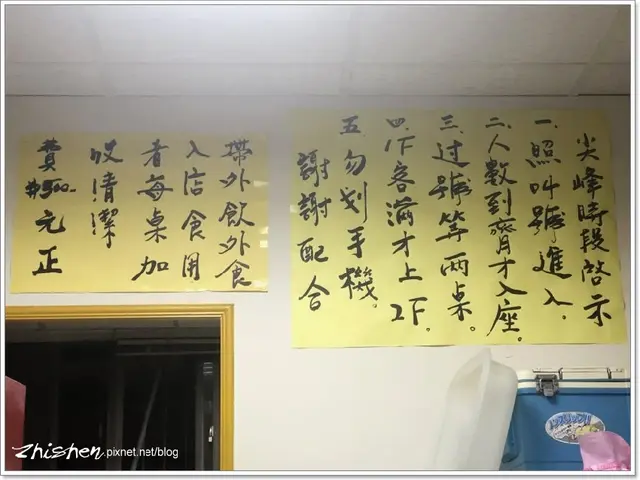 尖峰時段啓示
一.照叫號進入.
二.人數到齊才入座.
三.过號等兩桌.
四.1F客滿才上2F.
五.勿划手機.
謝謝配合
帶外飲外食
入店食用
者每桌加
收清潔
費$500-元正
zhishen.pixnet.net/blog